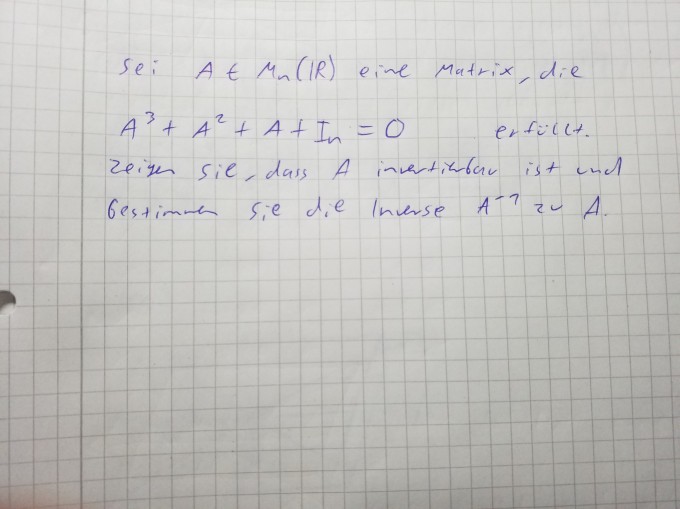 Sei A ∈ Mn(IR) eine Matrix, die
A³ + A² + A + In = 0 erfüllt.
Zeigen Sie, dass A invertierbar ist und
bestimmen Sie die Inverse A⁻¹ zu A.